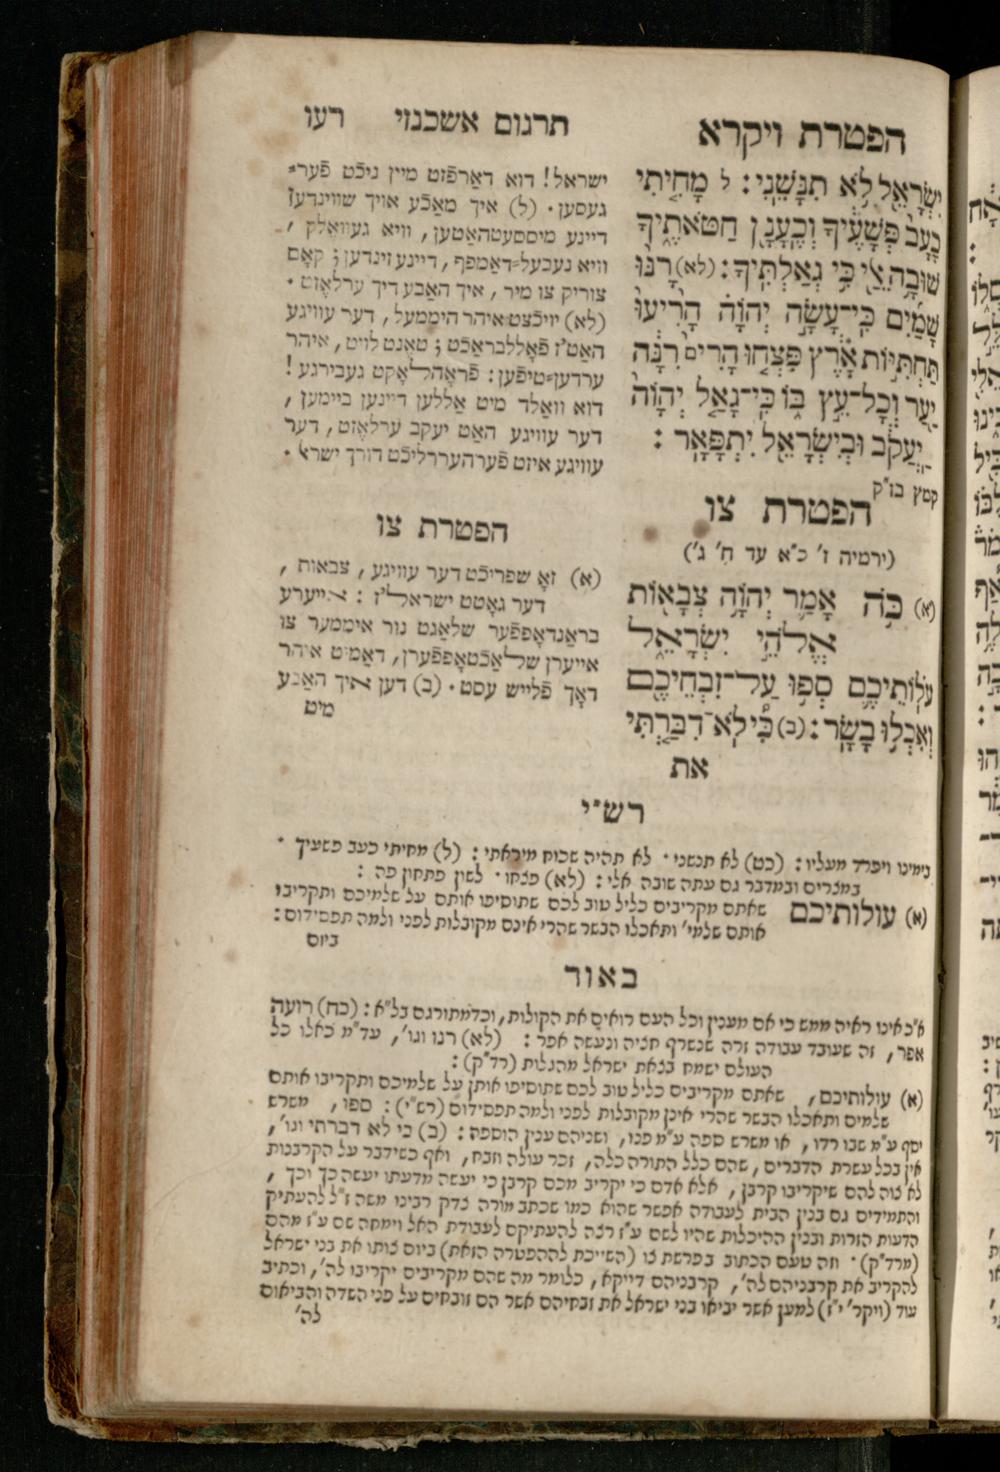 הפטרת ויקרא
תרגום אשכנזי
רעו
יִשְׂרָאֵ֖ל לֹ֥א תִנָּשֵֽׁנִי׃ ל מָחִ֤יתִי
כָעָב֙ פְּשָׁעֶ֔יךָ וְכֶעָנָ֖ן חַטֹּאתֶ֑יךָ
שׁוּבָ֥ה אֵלַ֖י כִּ֥י גְאַלְתִּֽיךָ׃ (לא) רָנּוּ
שָׁמַ֜יִם כִּֽי־עָשָׂ֣ה יְהוָֹ֗ה הָרִ֙יעוּ֙
תַּחְתִּיּ֣וֹת אָ֔רֶץ פִּצְח֤וּ הָרִים֙ רִנָּ֔ה
יַ֖עַר וְכָל־עֵ֣ץ בּ֑וֹ כִּֽי־גָאַ֤ל יְהוָֹה֙
יַֽעֲקֹ֔ב וּבְיִשְׂרָאֵ֖ל יִתְפָּאָֽר׃
קמץ בז"ק
ישראל! דוא דארפֿזט מיין ניכֿט פֿער=
געסען. (ל) איך מאַכֿע אויך שווינדען
דיינע מיססעטהאַטען, וויא געוואָלק,
וויא נעבעל=דאַמפף, דיינע זינדען; קאָם
צוריק צו מיר, איך האַבע דיך ערלאֶזט.
(לא) יויכֿצט איהר היממעל, דער עוויגע
האַט'ז פֿאָללבראַכֿט; טאֶנט לויט, איהר
ערדען=טיפֿען: פֿראָהלאָקט געבירגע!
דוא וואַלד מיט אַללען דיינען ביימען,
דער עוויגע האַט יעקב ערלאֶזט, דער
עוויגע איזט פֿערהעררליכֿט דורך ישראל.
הפטרת צו
(ירמיה ז' כ"א עד ח' ג')
(א) כֹּ֥ה אָמַ֛ר יְהוָֹ֥ה צְבָא֖וֹת
אֱלֹהֵ֣י יִשְׂרָאֵ֑ל
עֹלֽוֹתֵיכֶ֛ם סְפ֥וּ עַל־זִבְחֵיכֶ֖ם
וְאִכְל֥וּ בָשָֽׂר׃ (ב) כִּ֠י לֹֽא־דִבַּ֤רְתִּי
את
הפטרת צו
(א) זאָ שפריכֿט דער עוויגע, צבאות,
דער גאָטט ישראל'ז: אייערע
בראַנדאָפפֿער שלאַגט נור איממער צו
אייערן שלאַכֿטאָפפֿערן, דאַמיט איהר
דאָך פֿלייש עסט. (ב) דען איך האַבע
מיט
רש"י
נימינו ויפרד מעליו: (כט) לא תנשני. לא תהיה שכוח מיראתי: (ל) מחיתי כעב פשעיך.
במצרים ובמדבר גם עתה שובה אלי: (לא) פצחו. לשון פתחון פה:
(א) עולותיכם שאתם מקריבים כליל טוב לכם שתוסיפו אותם על שלמיכם ותקריבו
אותם שלמי' ותאכלו הבשר שהרי אינם מקובלות לפני ולמה תפסידום:
ביום
באור
א"כ אינו ראיה ממש כי אם מענין וכל העם רואים את הקולות, וכדמתורגם בל"א: (כח) רועה
אפר, זה שעובד עבודה זרה שנשרף חציה ונעשה אפר: (לא) רנו וגו', עד"מ כאלו כל
העולם ישמח בצאת ישראל מהגלות (רד"ק):
(א) עולותיכם, שאתם מקריבים כליל טוב לכם שתוסיפו אותן על שלמיכם ותקריבו אותם
שלמים ותאכלו הבשר שהרי אינן מקובלות לפני ולמה תפסידום (רש"י): ספו, משרש
יסף ע"מ שבו רדו, או משרש ספה ע"מ פנו, ושניהם ענין הוספה: (ב) כי לא דברתי וגו',
אין בכל עשרת הדברים, שהם כלל התורה כלה, זכר עולה וזבח, ואף כשידבר על הקרבנות
לא צוה להם שיקריבו קרבן, אלא אדם כי יקריב מכם קרבן כי יעשה מדעתו יעשה כך וכך,
והתמידים גם בנין הבית לעבודה אפשר שהוא כמו שכתב מורה צדק רבינו משה ז"ל להעתיק
הדעות הזרות ובנין ההיכלות שהיו לשם ע"ז רצה להעתיקם לעבודת האל וימחה שם ע"ז מהם
(מרד"ק). וזה טעם הכתוב בפרשת צו (השייכת לההפטרה הזאת) ביום צותו את בני ישראל
להקריב את קרבניהם לה', קרבניהם דייקא, כלומר מה שהם מקריבים יקריבו לה', וכתיב
עוד (ויקר' י"ז) למען אשר יביאו בני ישראל את זבחיהם אשר הם זובחים על פני השדה והביאום
לה'